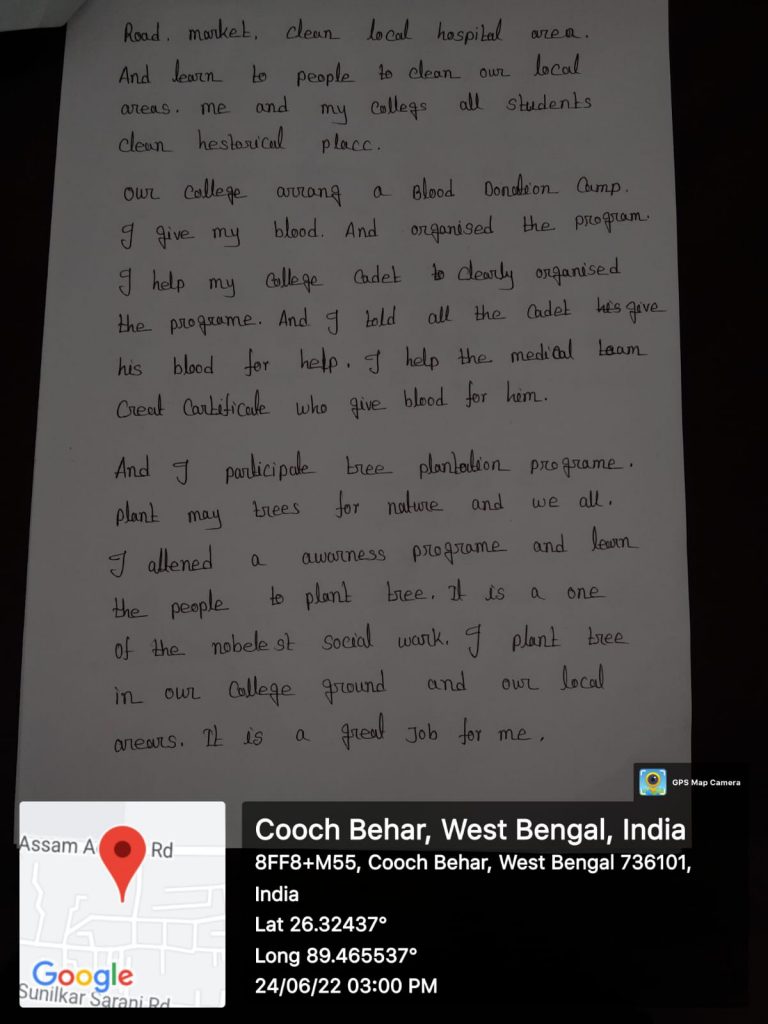 Road, market, clean local hospital area.
And learn to people to clean our local
areas. me and my collegs all students
clean hestorical placc.
Our College arrang a Blood Donation Camp.
I give my blood. And organised the program.
I help my College Cadet to clearly organised
the programe. And I told all the cadet his give
his blood for help. I help the medical team
Creat Cartificate who give blood for him.
And I participate tree plantation programe.
Plant may trees for nature and we all.
I altened a awarness programe and learn
the people to plant tree. It is a one
of the nobelest social work. I plant tree
in our College ground and our local
arears. It is a great Job for me.
GPS Map Camera
Assam A Rd
Google
Sunilkar Sarani Rd
Cooch Behar, West Bengal, India
8FF8+M55, Cooch Behar, West Bengal 736101,
India
Lat 26.32437°
Long 89.465537°
24/06/22 03:00 PM